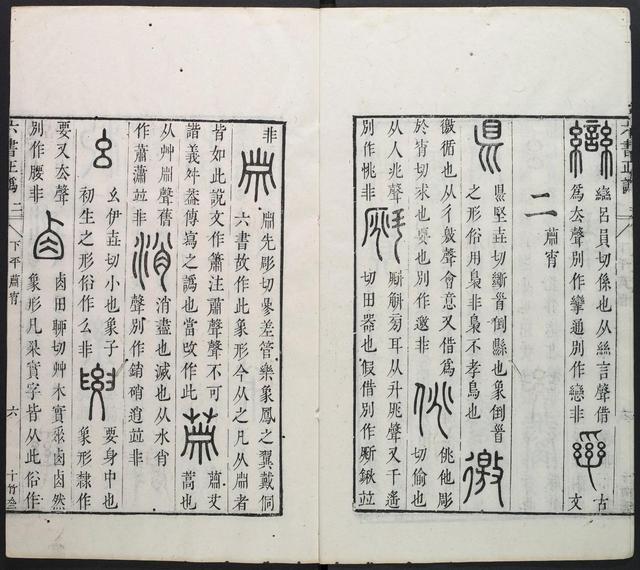 䜌 䜌呂員切係也从絲言聲借 古
爲去聲別作攣通別作戀非 文
二 蕭宵
県 県堅垚切斷𥄉倒縣也象倒𥄉
之形俗用梟非梟不孝鳥也
徼 徼循也从彳敫聲會意又借爲
於宵切求也要也別作邀非
佻 佻他彫
切偷也
从人兆聲
別作恌非
旁耳从斗聲又千遙
切田器也假借別作鍬竝
非
先彫切參差管樂象鳳之翼戴侗
六書故作此象形今从之凡者
皆如此說文作簫注肅聲聲不可
諧義舛葢傳寫之譌也當改作此
艾
蒿也
从艸聲舊
作蕭瀟竝非
消 消盡也滅也从水肖
聲別作銷硝逍竝非
幺 幺伊垚切小也象子
初生之形俗作么非
要 要身中也
象形隸作
要又去聲
別作腰非
卤 卤田聊切艸木實垂卤卤然
象形凡㮚實字皆从此俗作
六書正譌 二
下平蕭宵
六
十竹齋
六書正譌